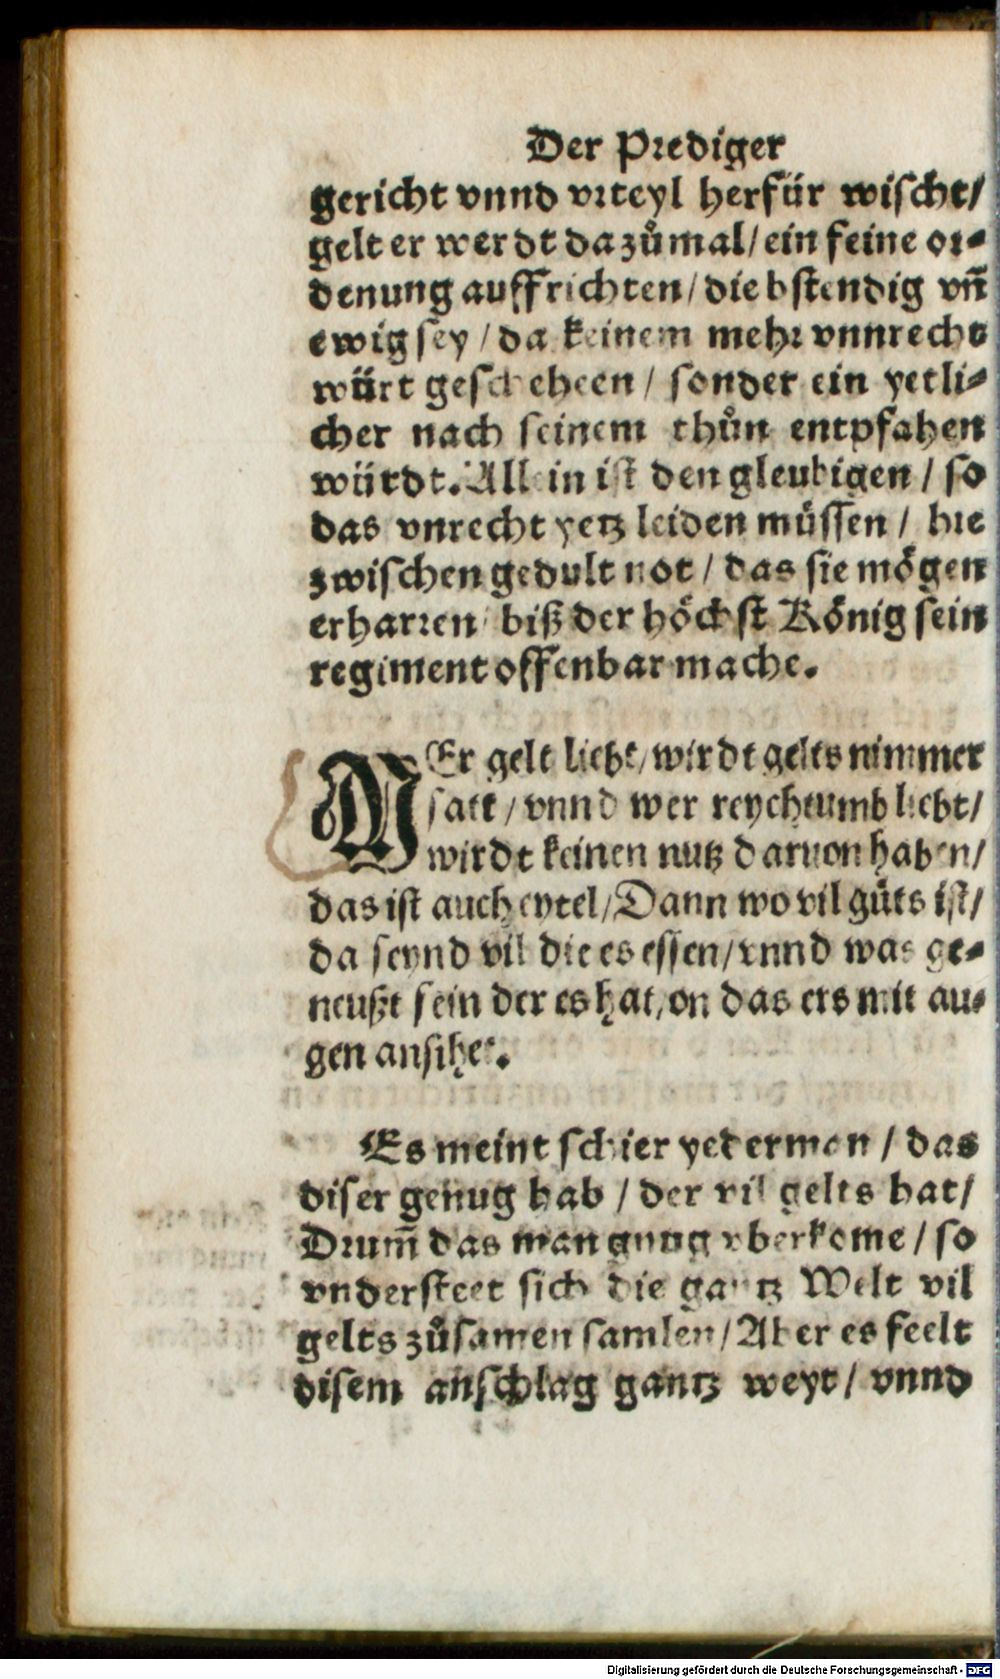 Der Prediger
gericht vnnd vrteyl herfür wischt/
gelt er werdt dazůmal/ ein feine or⸗
denung auffrichten/ die bstendig vñ
ewig sey/ da keinem mehr vnnrecht
würt gescheheen/ sonder ein yetli⸗
cher nach seinem thůn entpfahen
würdt. Allein ist den gleubigen/ so
das vnrecht yetz leiden müssen/ hie
zwischen gedult not/ das sie mögen
erharren/ biß der höchst König sein
regiment offenbar mache.
WEr gelt liebt/ wirdt gelts nimmer
satt/ vnnd wer reychtumb liebt/
wirdt keinen nutz daruon haben/
das ist auch eytel/ Dann wo vil güts ist/
da seynd vil die es essen/ vnnd was ge⸗
neußt sein der es hat, on das ers mit au⸗
gen ansihet.
Es meint schier yederman/ das
diser genug hab/ der vil gelts hat/
Drum̃ das man gnug vberkome/ so
vndersteet sich die gantz Welt vil
gelts zůsamen samlen/ Aber es feelt
disem anschlag gantz weyt/ vnnd
Digitalisierung gefördert durch die Deutsche Forschungsgemeinschaft - DFG